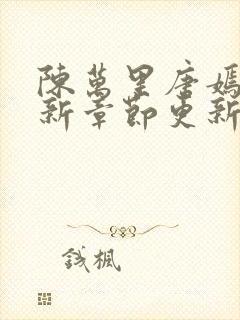 陳萬里唐嫣
新章節更新
錢楓